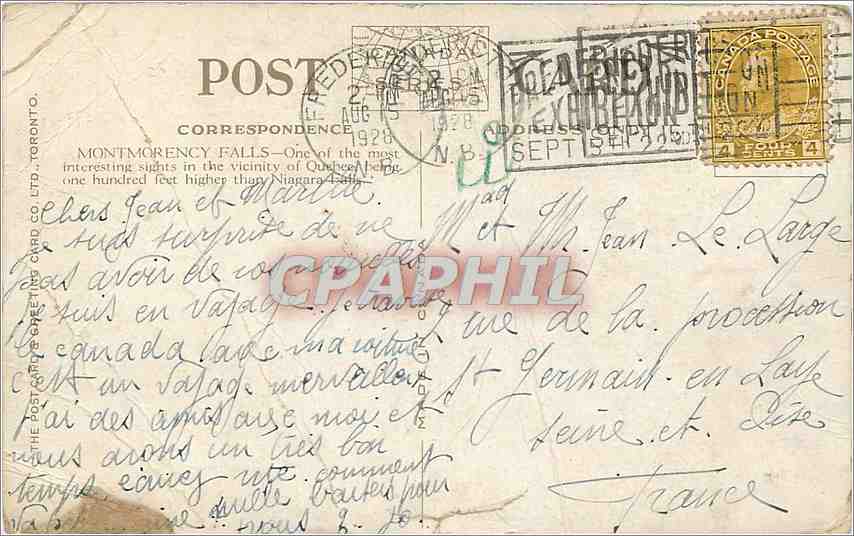 POST CARD
CORRESPONDENCE
ADDRESS ONLY
MONTMORENCY FALLS—One of the most
interesting sights in the vicinity of Quebec, being
one hundred feet higher than Niagara Falls.
THE POST CARD & GREETING CARD CO. LTD., TORONTO.
MADE IN CANADA
FREDERICTON
AUG 15
1928
N.B.
FREDERICTON
EXHIBITION
SEPT
CANADA POSTAGE
4 FOUR CENTS 4
Chers Jean et
Je suis surprise de ne
pas avoir de vos nouvelles
je suis en voyage je
le canada avec ma voiture
c'est un voyage merveilleux
j'ai des amis avec moi et
nous avons un très bon
temps comment
mille baisers pour
vous 2
et M. Jean Le Large
rue de la procession
St Germain en Laye
Seine et Oise
France
CPAPHIL